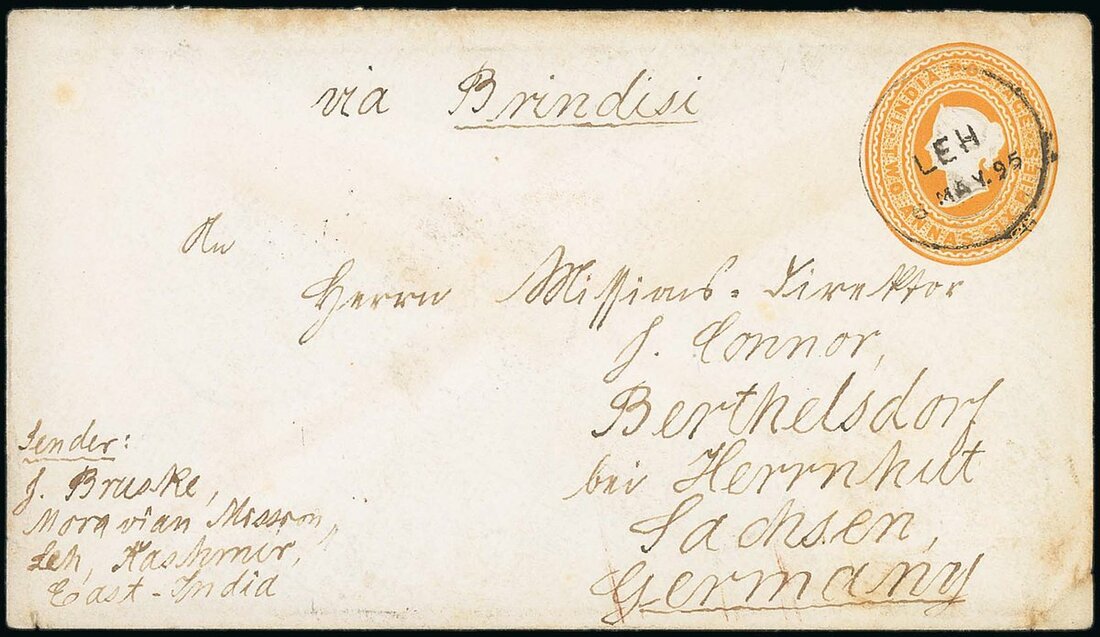 via Brindisi
INDIA POSTAGE
TWO ANNAS SIX PIES
LEH
MAY. 95
An
Herrn Missions-Direktor
J. Connor,
Berthelsdorf
bei Herrnhut
Sachsen,
Germany
Sender:
J. Bruske,
Moravian Mission,
Leh, Kashmir,
East-India